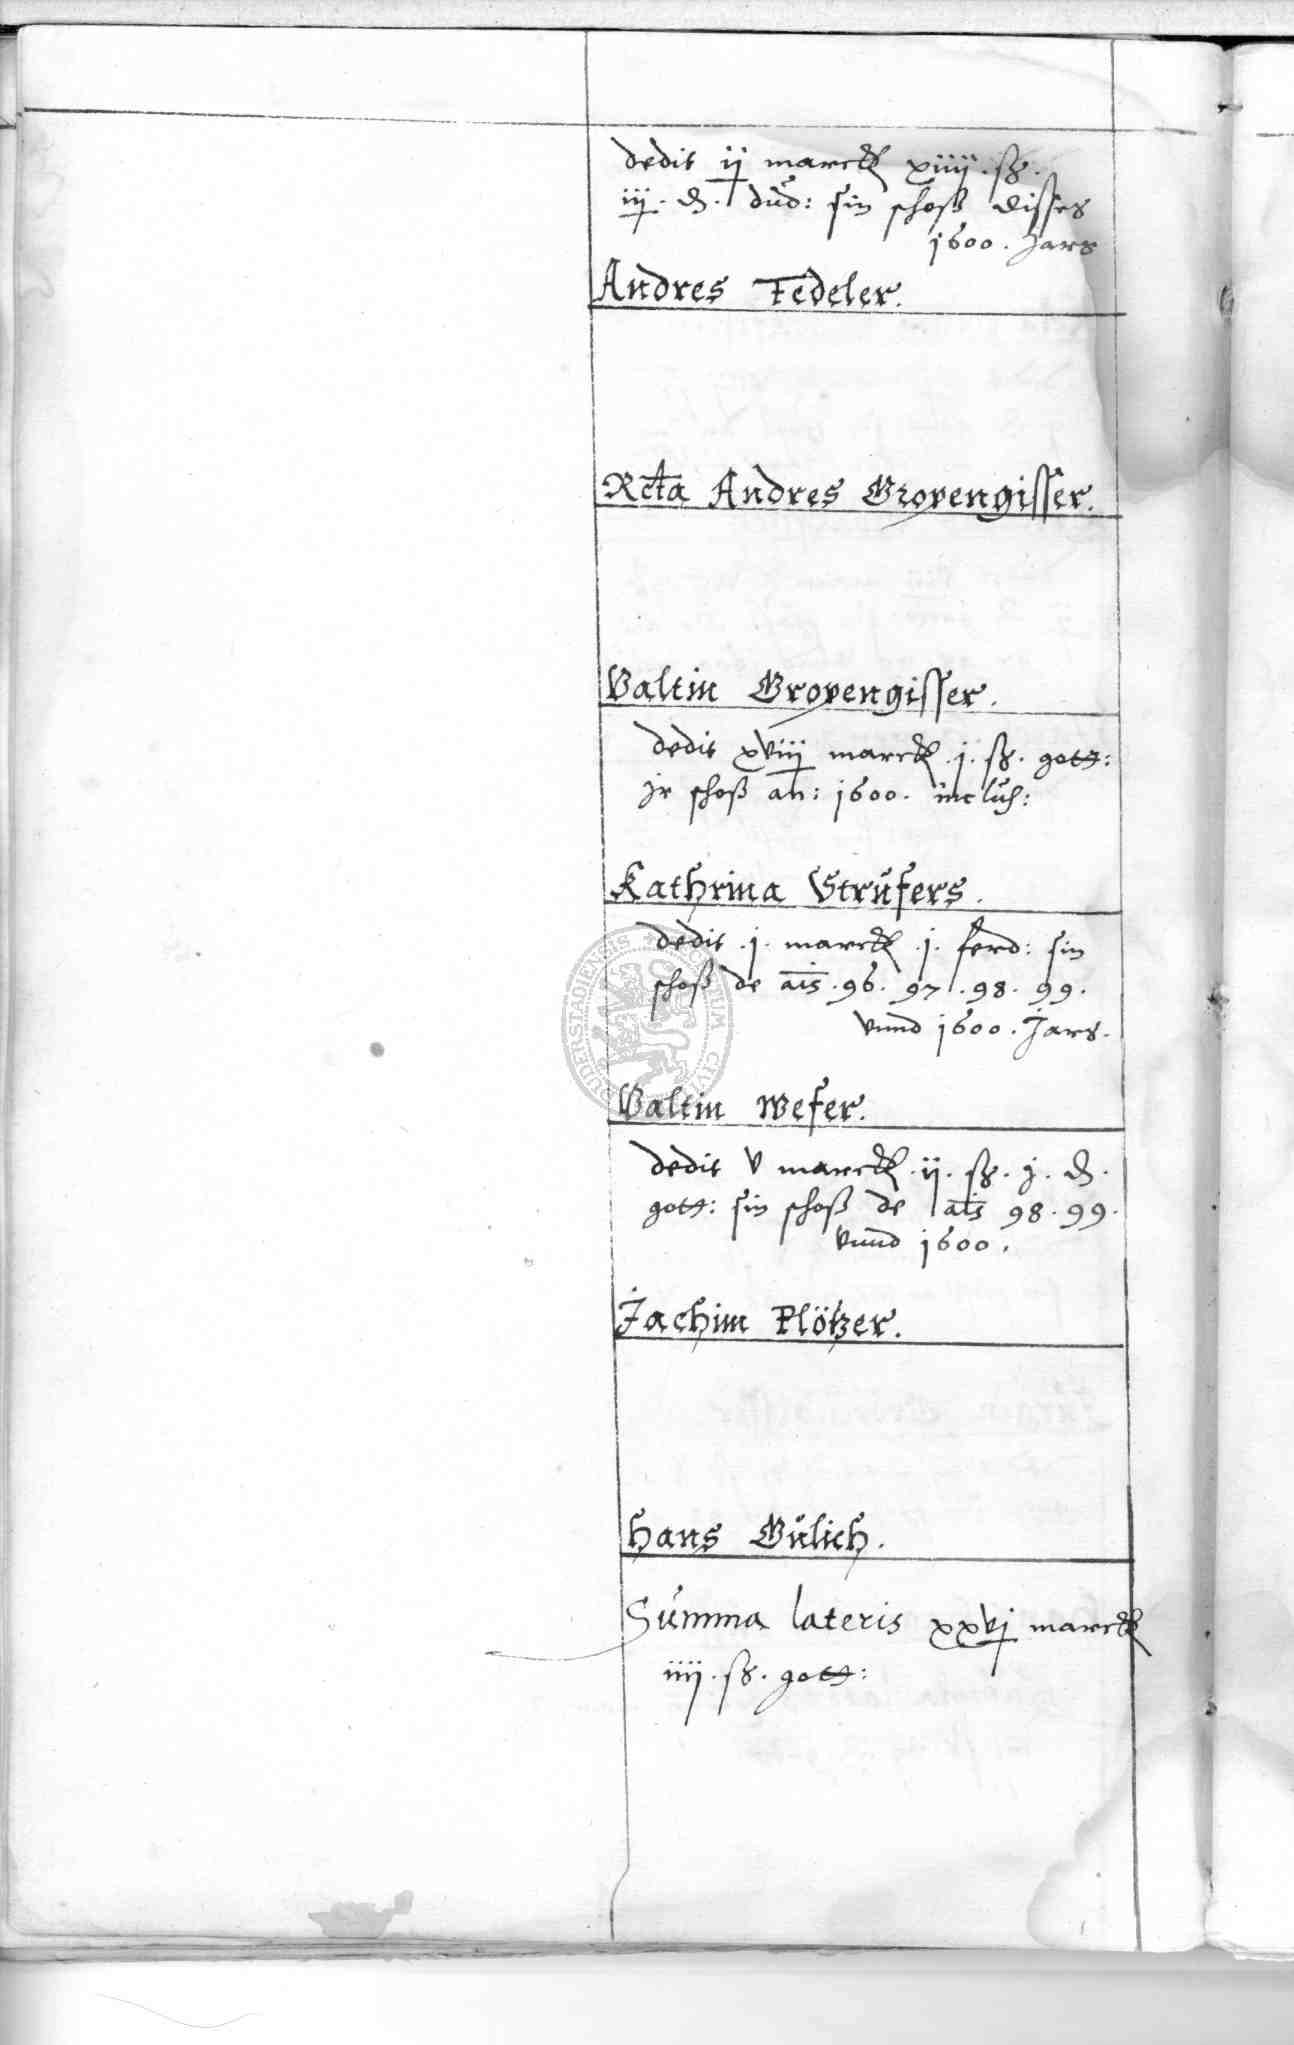 dedit ij marck xiiij. ß.
iij. ₰. dud: sin schoß disses
1600. Jars
Andres Tedeler.
Rcta Andres Gropengisser.
Valtin Gropengisser.
dedit xviij marck .j. ß. gott:
jr schoß an: 1600. incluß:
Kathrina Strufers.
dedit .j. marck .j. ferd: sin
schoß de ais. 96. 97. 98. 99.
vnnd 1600. Jars.
Valtin Wefer.
dedit v marck .ij. ß. j. ₰.
gott: sin schoß de ais 98. 99.
vnnd 1600.
Jachim Plötzer.
Hans Gulich.
Summa lateris xxvj marck
iiij. ß. gott:
DUDERSTADIENSIS